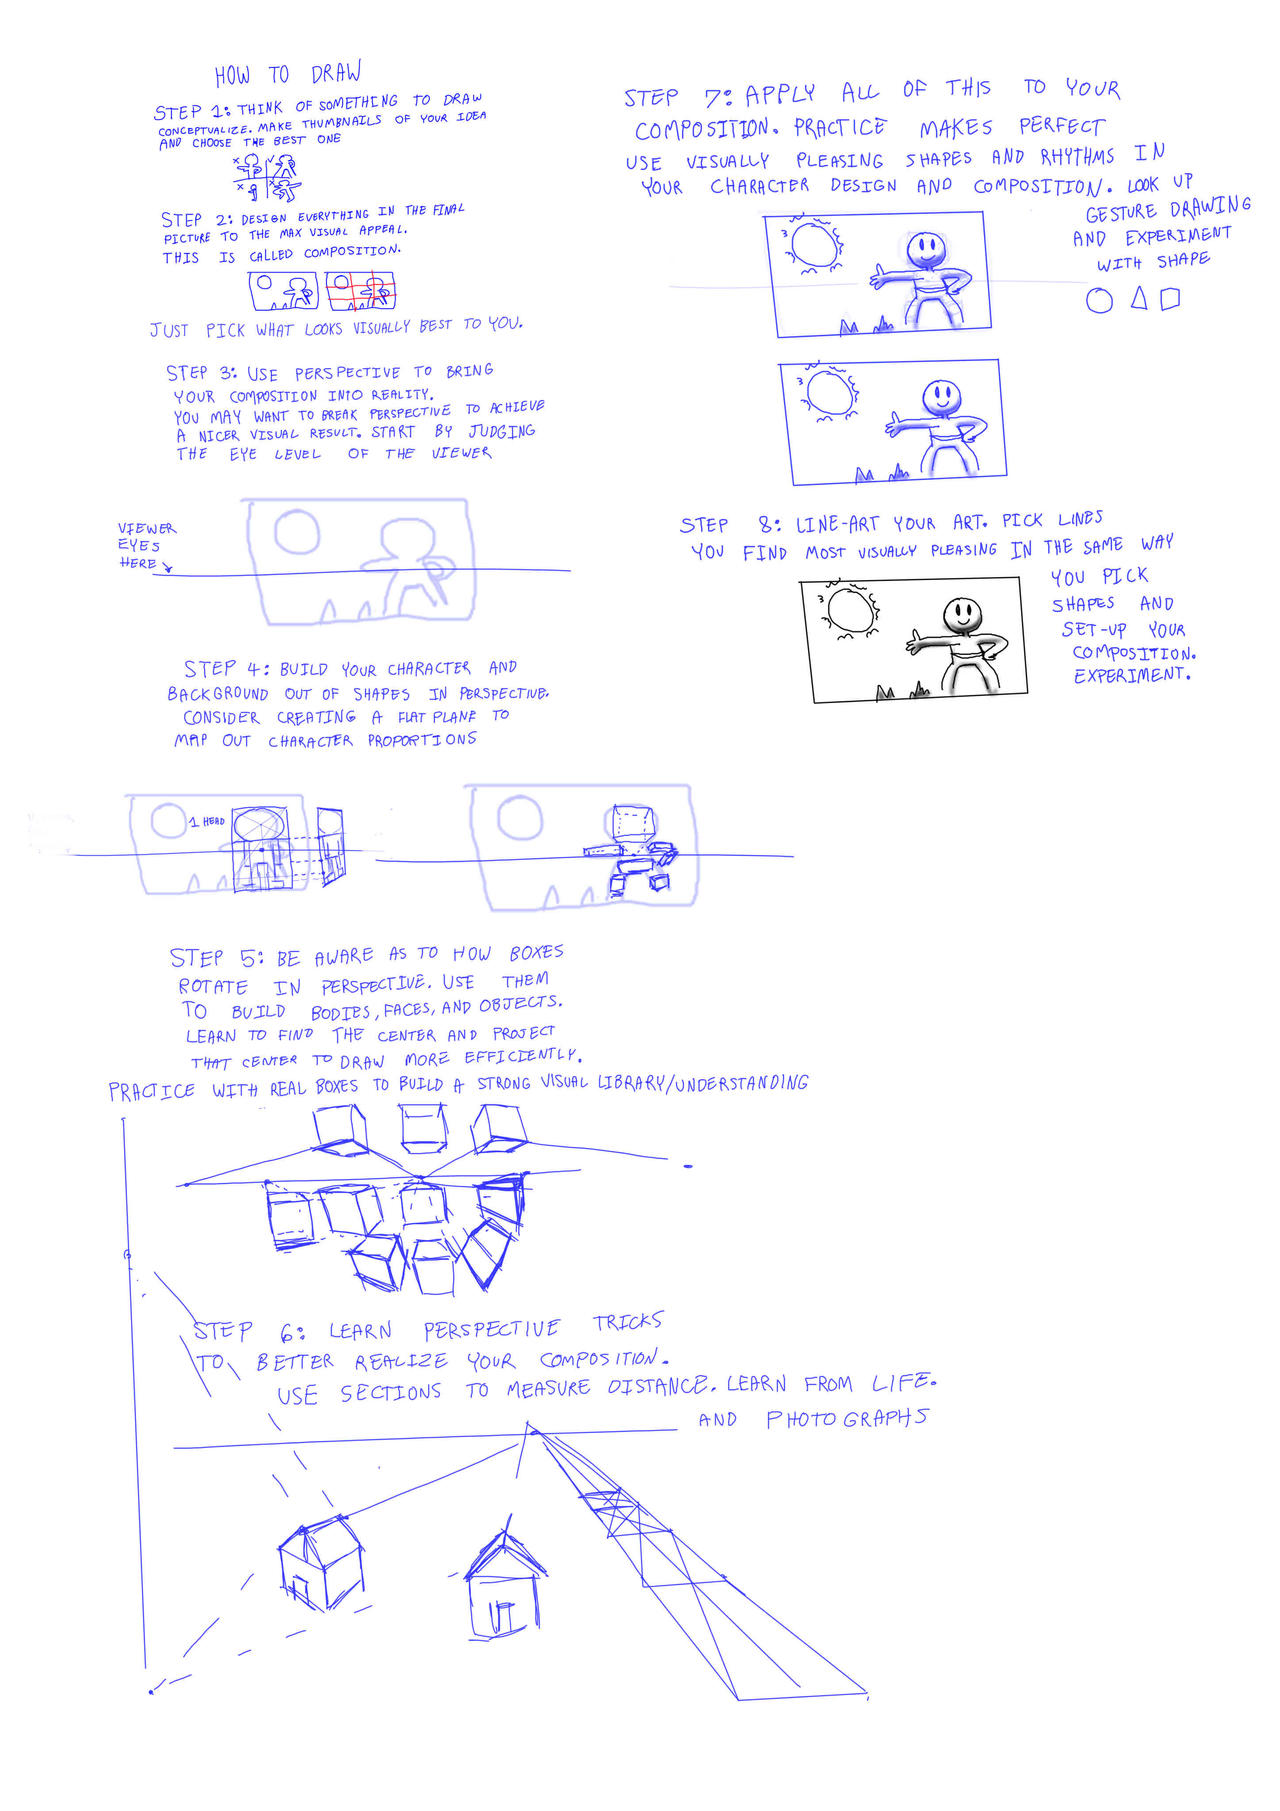 HOW TO DRAW
STEP 1: THINK OF SOMETHING TO DRAW
CONCEPTUALIZE. MAKE THUMBNAILS OF YOUR IDEA
AND CHOOSE THE BEST ONE
STEP 2: DESIGN EVERYTHING IN THE FINAL
PICTURE TO THE MAX VISUAL APPEAL.
THIS IS CALLED COMPOSITION.
JUST PICK WHAT LOOKS VISUALLY BEST TO YOU.
STEP 3: USE PERSPECTIVE TO BRING
YOUR COMPOSITION INTO REALITY.
YOU MAY WANT TO BREAK PERSPECTIVE TO ACHIEVE
A NICER VISUAL RESULT. START BY JUDGING
THE EYE LEVEL OF THE VIEWER
VIEWER
EYES
HERE
STEP 4: BUILD YOUR CHARACTER AND
BACKGROUND OUT OF SHAPES IN PERSPECTIVE.
CONSIDER CREATING A FLAT PLANE TO
MAP OUT CHARACTER PROPORTIONS
1 HEAD
STEP 5: BE AWARE AS TO HOW BOXES
ROTATE IN PERSPECTIVE. USE THEM
TO BUILD BODIES, FACES, AND OBJECTS.
LEARN TO FIND THE CENTER AND PROJECT
THAT CENTER TO DRAW MORE EFFICIENTLY.
PRACTICE WITH REAL BOXES TO BUILD A STRONG VISUAL LIBRARY/UNDERSTANDING
STEP 6: LEARN PERSPECTIVE TRICKS
TO BETTER REALIZE YOUR COMPOSITION.
USE SECTIONS TO MEASURE DISTANCE. LEARN FROM LIFE.
AND PHOTOGRAPHS
STEP 7: APPLY ALL OF THIS TO YOUR
COMPOSITION. PRACTICE MAKES PERFECT
USE VISUALLY PLEASING SHAPES AND RHYTHMS IN
YOUR CHARACTER DESIGN AND COMPOSITION. LOOK UP
GESTURE DRAWING
AND EXPERIMENT
WITH SHAPE
STEP 8: LINE-ART YOUR ART. PICK LINES
YOU FIND MOST VISUALLY PLEASING IN THE SAME WAY
YOU PICK
SHAPES AND
SET-UP YOUR
COMPOSITION.
EXPERIMENT.